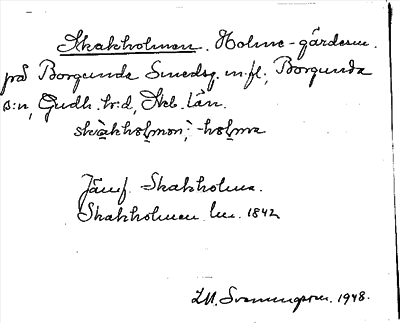 Skakholmen. Holme-gärdesn.
på Borgunda Smedsg. m.fl., Borgunda
s:n, Gudh. h:d, Skb. län.
skàkhòlmən; -holma
Jämf. Skakholma.
Skakholmen Lm. 1842
1948.